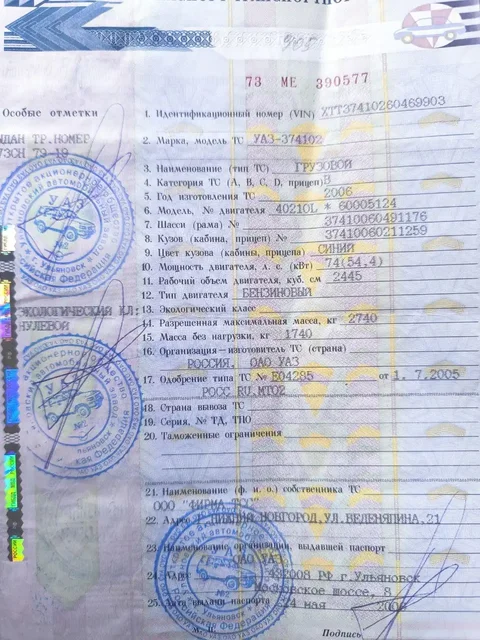 73 МЕ 390577
Особые отметки
ТР.НОМЕР
73-19
ЭКОЛОГИЧЕСКИЙ КЛ:
НУЛЕВОЙ
1. Идентификационный номер (VIN) XTT37410260469903
2. Марка, модель ТС УАЗ-374102
3. Наименование (тип ТС) ГРУЗОВОЙ
4. Категория ТС (А, В, С, D, прицеп) В
5. Год изготовления ТС 2006
6. Модель, № двигателя 40210L * 60005124
7. Шасси (рама) № 37410060491176
8. Кузов (кабина, прицеп) № 37410060211259
9. Цвет кузова (кабины, прицепа) СИНИЙ
10. Мощность двигателя, л. с. (кВт) 74(54,4)
11. Рабочий объем двигателя, куб. см 2445
12. Тип двигателя БЕНЗИНОВЫЙ
13. Экологический класс
14. Разрешенная максимальная масса, кг 2740
15. Масса без нагрузки, кг 1740
16. Организация—изготовитель ТС (страна)
РОССИЯ, ОАО УАЗ
17. Одобрение типа ТС № Е04285 от 1.7.2005
РОСС RU.МТ02
18. Страна вывоза ТС
19. Серия, № ТД, ТПО
20. Таможенные ограничения
21. Наименование (ф. и. о.) собственника ТС
ООО "ФИРМА
22. Адрес НОВГОРОД,УЛ.ВЕДЕНЯПИНА,21
23. Наименование организации, выдавшей паспорт
ОАО УАЗ
24. Адрес 432008 РФ г.Ульяновск
Московское шоссе, 8
25. Дата выдачи паспорта 24 мая 2006
М. П. Подпись